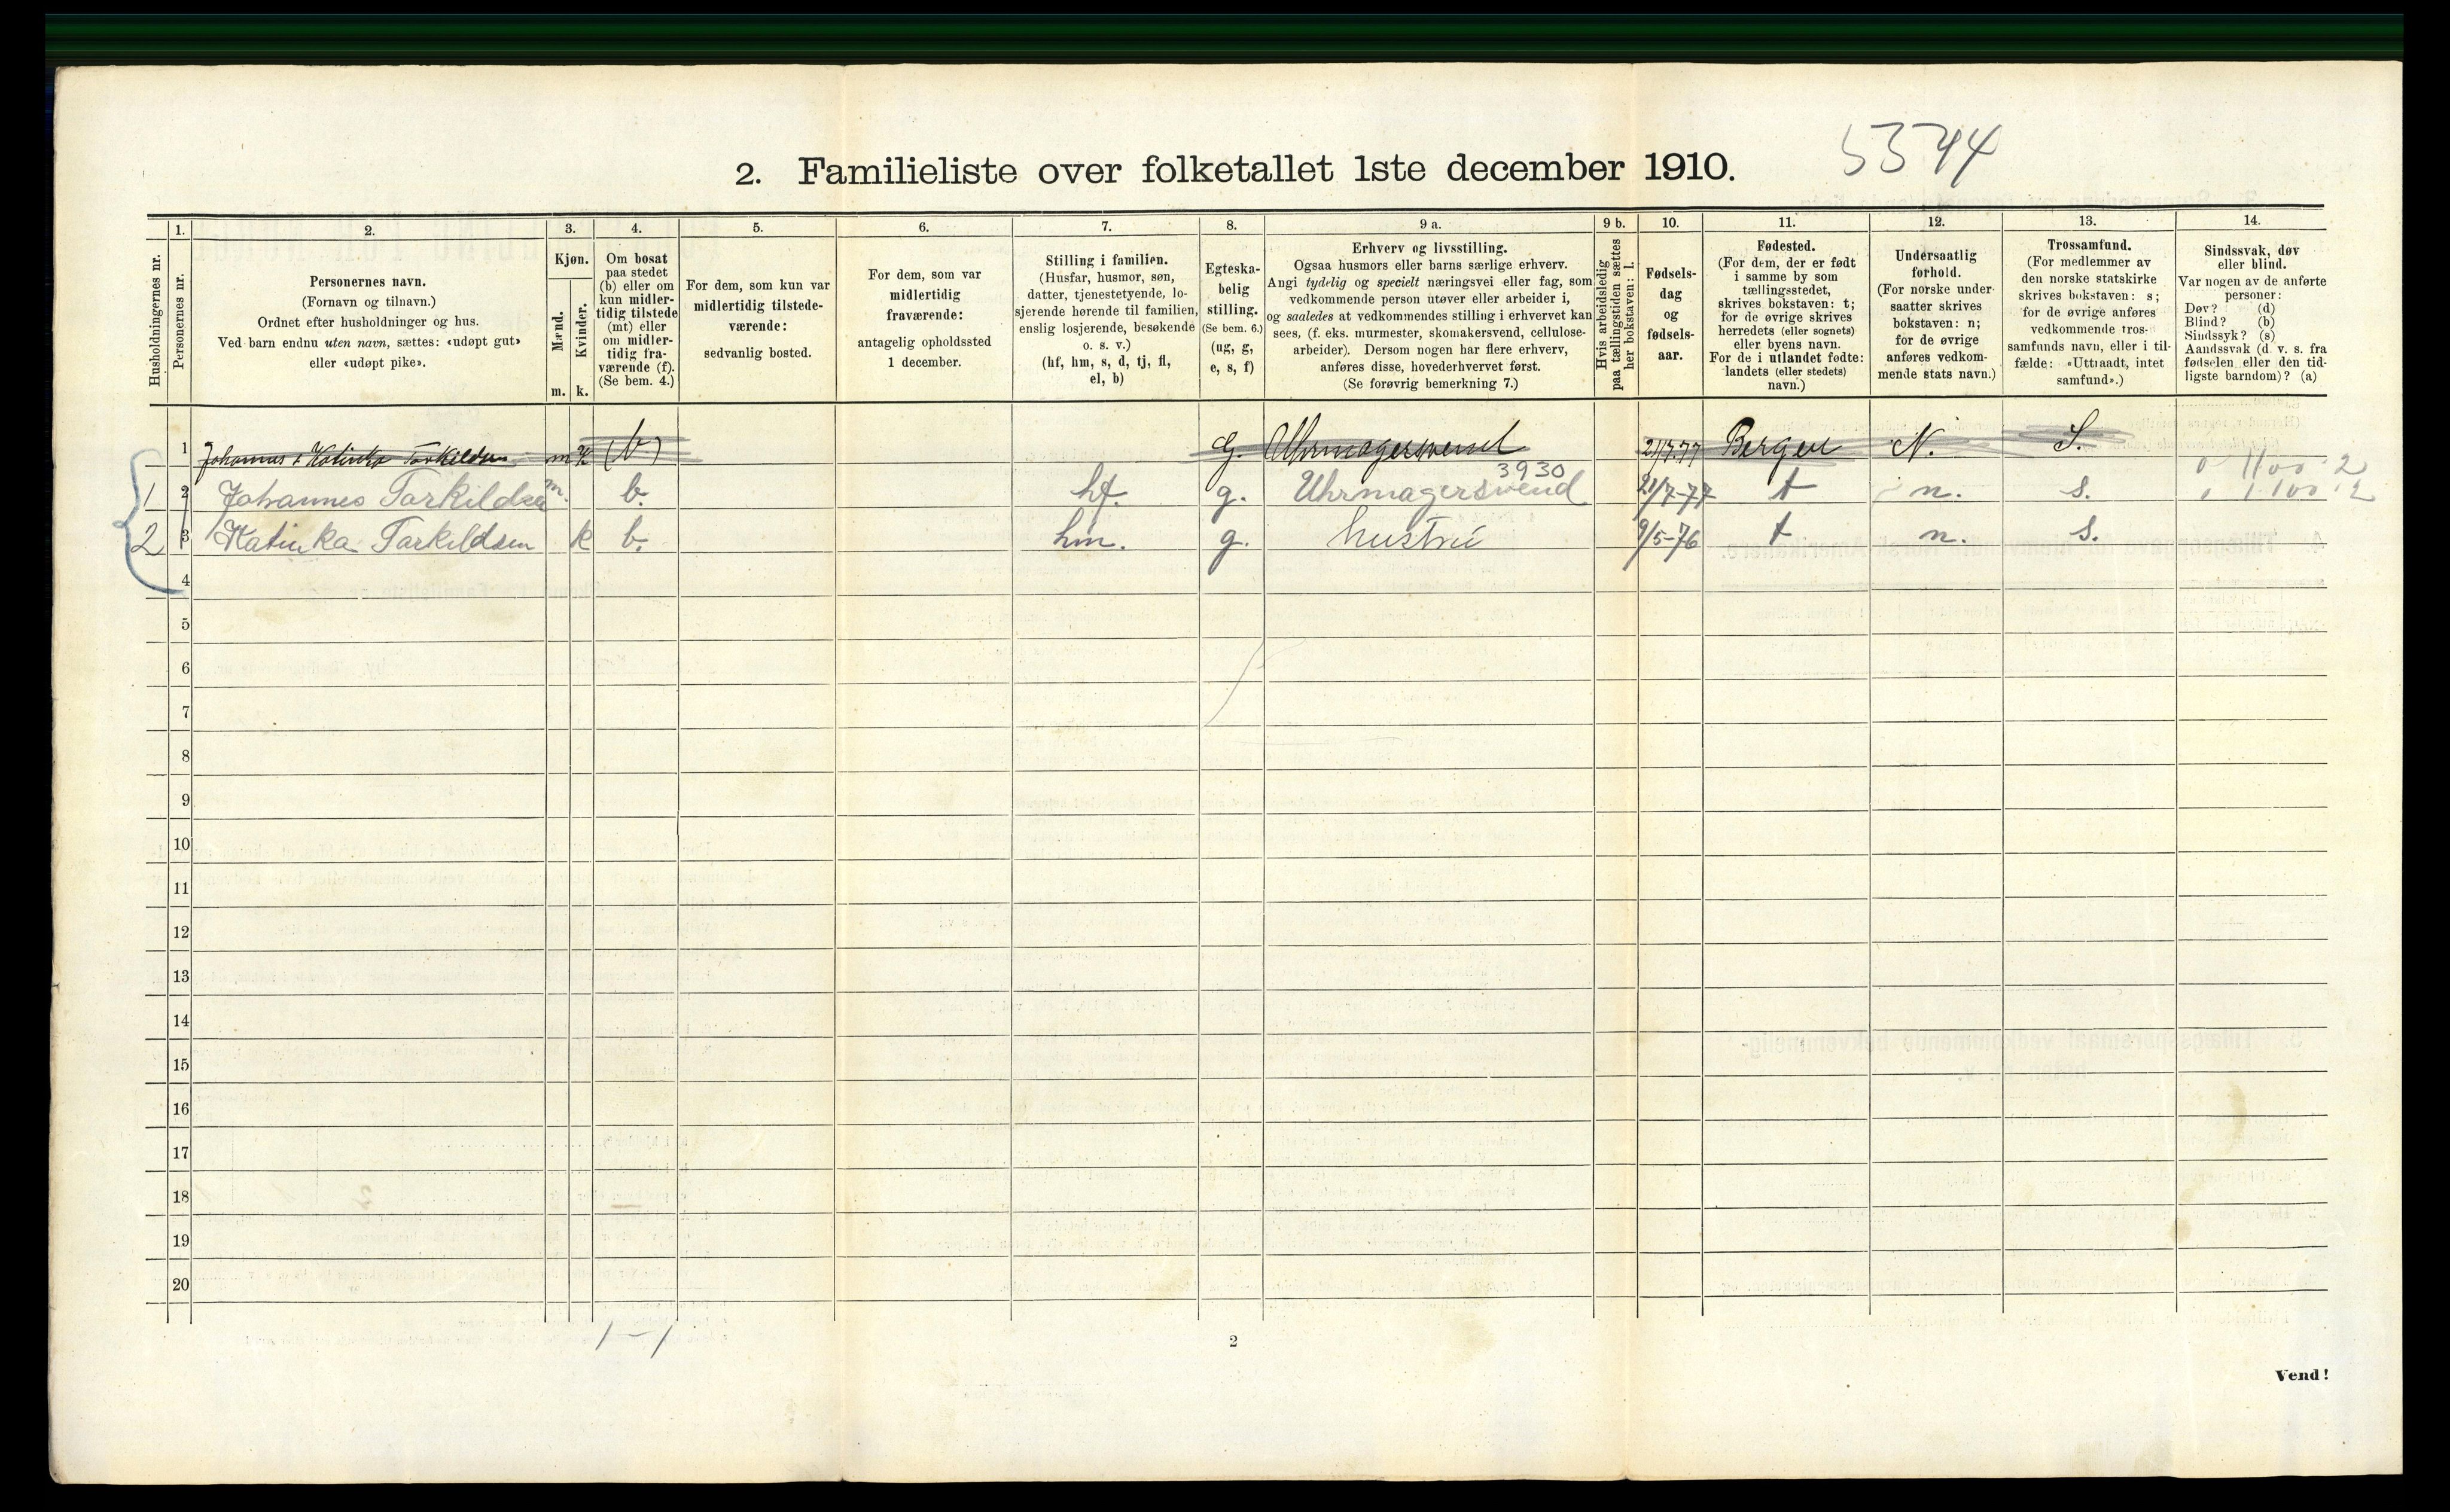 5344
2. Familieliste over folketallet 1ste december 1910.
Husholdningernes nr.
1. Personernes nr.
2.
Personernes navn.
(Fornavn og tilnavn.)
Ordnet efter husholdninger og hus.
Ved barn endnu uten navn, sættes: «udøpt gut»
eller «udøpt pike».
3.
Kjøn.
Mænd. Kvinder.
m. k.
4.
Om bosat
paa stedet
(b) eller om
kun midler-
tidig tilstede
(mt) eller
om midler-
tidig fra-
værende (f).
(Se bem. 4.)
5.
For dem, som kun var
midlertidig tilstede-
værende:
sedvanlig bosted.
6.
For dem, som var
midlertidig
fraværende:
antagelig opholdssted
1 december.
7.
Stilling i familien.
(Husfar, husmor, søn,
datter, tjenestetyende, lo-
sjerende hørende til familien,
enslig losjerende, besøkende
o. s. v.)
(hf, hm, s, d, tj, fl,
el, b)
8.
Egteska-
belig
stilling.
(Se bem. 6.)
(ug, g,
e, s, f)
9 a.
Erhverv og livsstilling.
Ogsaa husmors eller barns særlige erhverv.
Angi tydelig og specielt næringsvei eller fag, som
vedkommende person utøver eller arbeider i,
og saaledes at vedkommendes stilling i erhvervet kan
sees, (f. eks. murmester, skomakersvend, cellulose-
arbeider). Dersom nogen har flere erhverv,
anføres disse, hovederhvervet først.
(Se forøvrig bemerkning 7.)
9 b.
Hvis arbeidsledig
paa tællingstiden sættes
her bokstaven: l.
10.
Fødsels-
dag
og
fødsels-
aar.
11.
Fødested.
(For dem, der er født
i samme by som
tællingsstedet,
skrives bokstaven: t;
for de øvrige skrives
herredets (eller sognets)
eller byens navn.
For de i utlandet fødte:
landets (eller stedets)
navn.)
12.
Undersaatlig
forhold.
(For norske under-
saatter skrives
bokstaven: n;
for de øvrige
anføres vedkom-
mende stats navn.)
13.
Trossamfund.
(For medlemmer av
den norske statskirke
skrives bokstaven: s;
for de øvrige anføres
vedkommende tros-
samfunds navn, eller i til-
fælde: «Uttraadt, intet
samfund».)
14.
Sindssvak, døv
eller blind.
Var nogen av de anførte
personer:
Døv? (d)
Blind? (b)
Sindssyk? (s)
Aandssvak (d. v. s. fra
fødselen eller den tid-
ligste barndom)? (a)
1 Johannes & Katinka Torkildsen m k (b) g. Uhrmagersvend 21/7 77 Bergen N. S.
3930
1 2 Johannes Torkildsen m. b. hf. g. Uhrmagersvend 21/7-77 t n. s.
2 3 Katinka Torkildsen k b. hm. g. hustru 9/5-76 t n. s.
4
5
6
7
8
9
10
11
12
13
14
15
16
17
18
19
20
1 - 1
2
Vend!